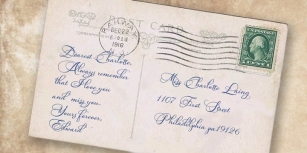 POST CARD
DEC 22
1916
Dearest Charlotte,
Always remember
that I love you
and miss you.
Yours forever,
Edward
Miss Charlotte Laing
1107 First Street
Philadelphia pa 19126